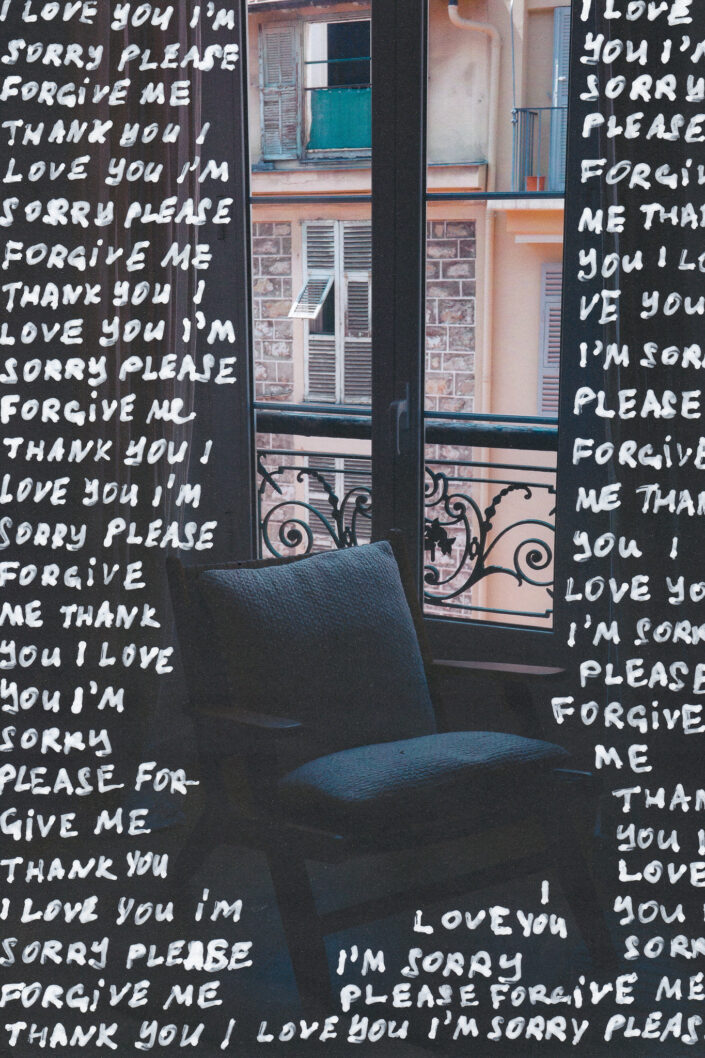 I LOVE YOU I'M
SORRY PLEASE
FORGIVE ME
THANK YOU I
LOVE YOU I'M
SORRY PLEASE
FORGIVE ME
THANK YOU I
LOVE YOU I'M
SORRY PLEASE
FORGIVE ME
THANK YOU I
LOVE YOU I'M
SORRY PLEASE
FORGIVE
ME THANK
YOU I LOVE
YOU I'M
SORRY
PLEASE FOR-
GIVE ME
THANK YOU
I LOVE YOU IM
SORRY PLEASE
FORGIVE ME
THANK YOU I LOVE YOU I'M SORRY PLEAS
I LOVE
YOU I'M
SORRY
PLEASE
FORGIV
ME THAN
YOU I LO
VE YOU
I'M SOR
PLEASE
FORGIVE
ME THAN
YOU I
LOVE YO
I'M SORR
PLEASE
FORGIVE
ME
THAN
YOU I
LOVE
YOU I
SORR
I
LOVE YOU
I'M SORRY
PLEASE FORGIVE ME